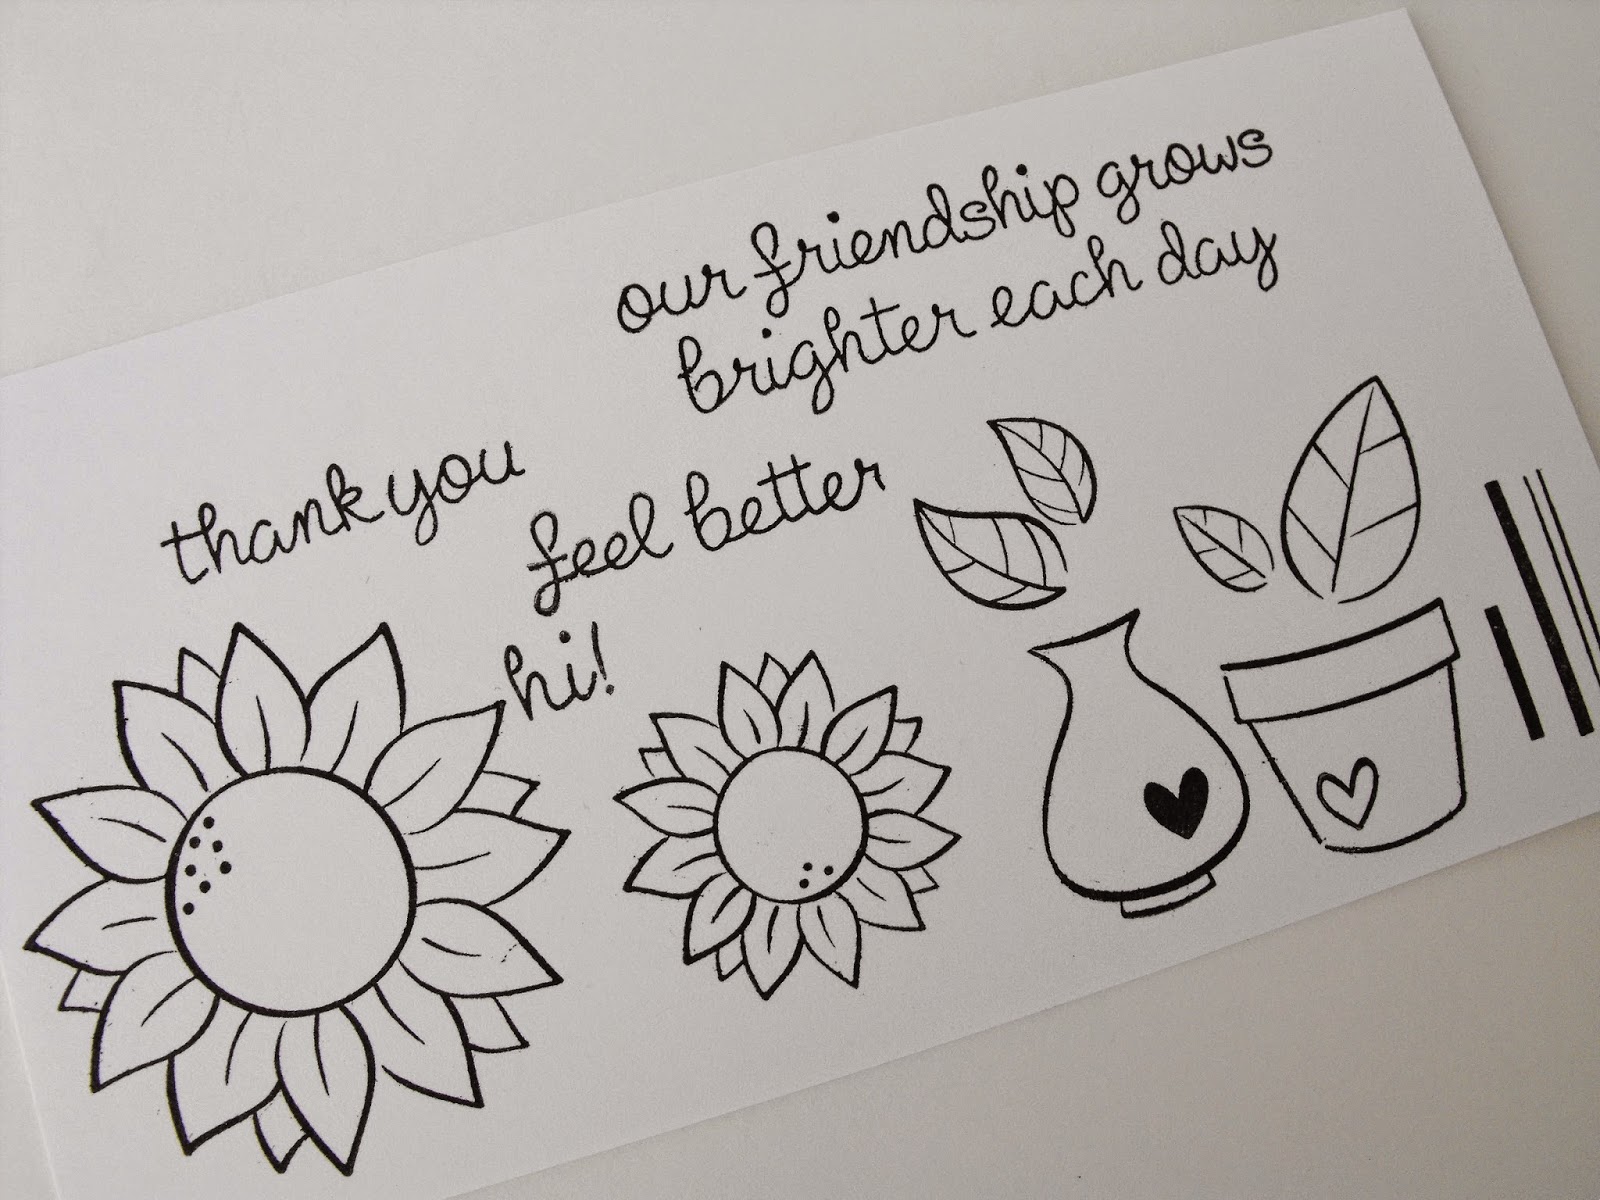 our friendship grows
brighter each day
thank you
feel better
hi!